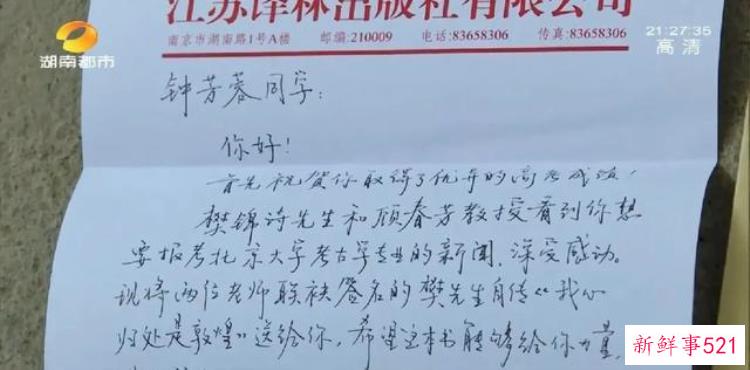 江苏译林出版社有限公司
21:27:35
高清
湖南都市
南京市湖南路1号A楼 邮编:210009 电话:83658306 传真:83658306
钟芳蓉同学:
你好!
首先祝贺你取得了优异的高考成绩,
樊锦诗先生和顾春芳教授看到你想
要报考北京大学考古学专业的新闻,深受感动。
现将两位老师联袂签名的樊先生自传《我心
归处是敦煌》送给你,希望这本书能够给你力量,
新鲜事521